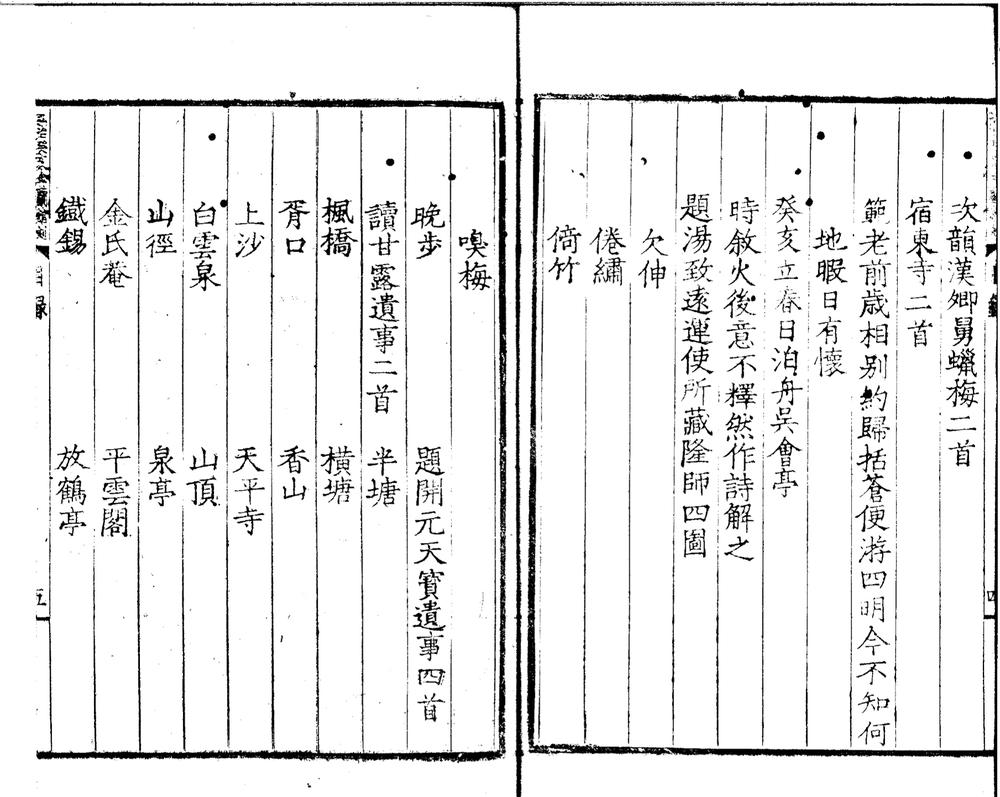 次韻漢卿舅蠟梅二首
宿東寺二首
範老前歲相别約歸括蒼便游四明今不知何
地暇日有懷
癸亥立春日泊舟吳會亭
時敘火後意不釋然作詩解之
題湯致遠運使所藏隆師四圖
欠伸
倦繡
倚竹
嗅梅
晚步 題開元天寶遺事四首
讀甘露遺事二首 半塘
楓橋 橫塘
胥口 香山
上沙 天平寺
白雲泉 山頂
山徑 泉亭
金氏菴 平雲閣
鐵錫 放鶴亭
目錄
五